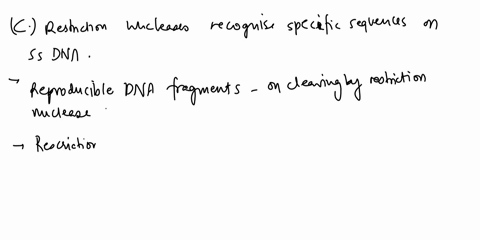 (C.) Restriction nucleases recognise specific sequences on
ss DNA.
→ Reproducible DNA fragments - on cleaving by restriction
nuclease
→ Restriction